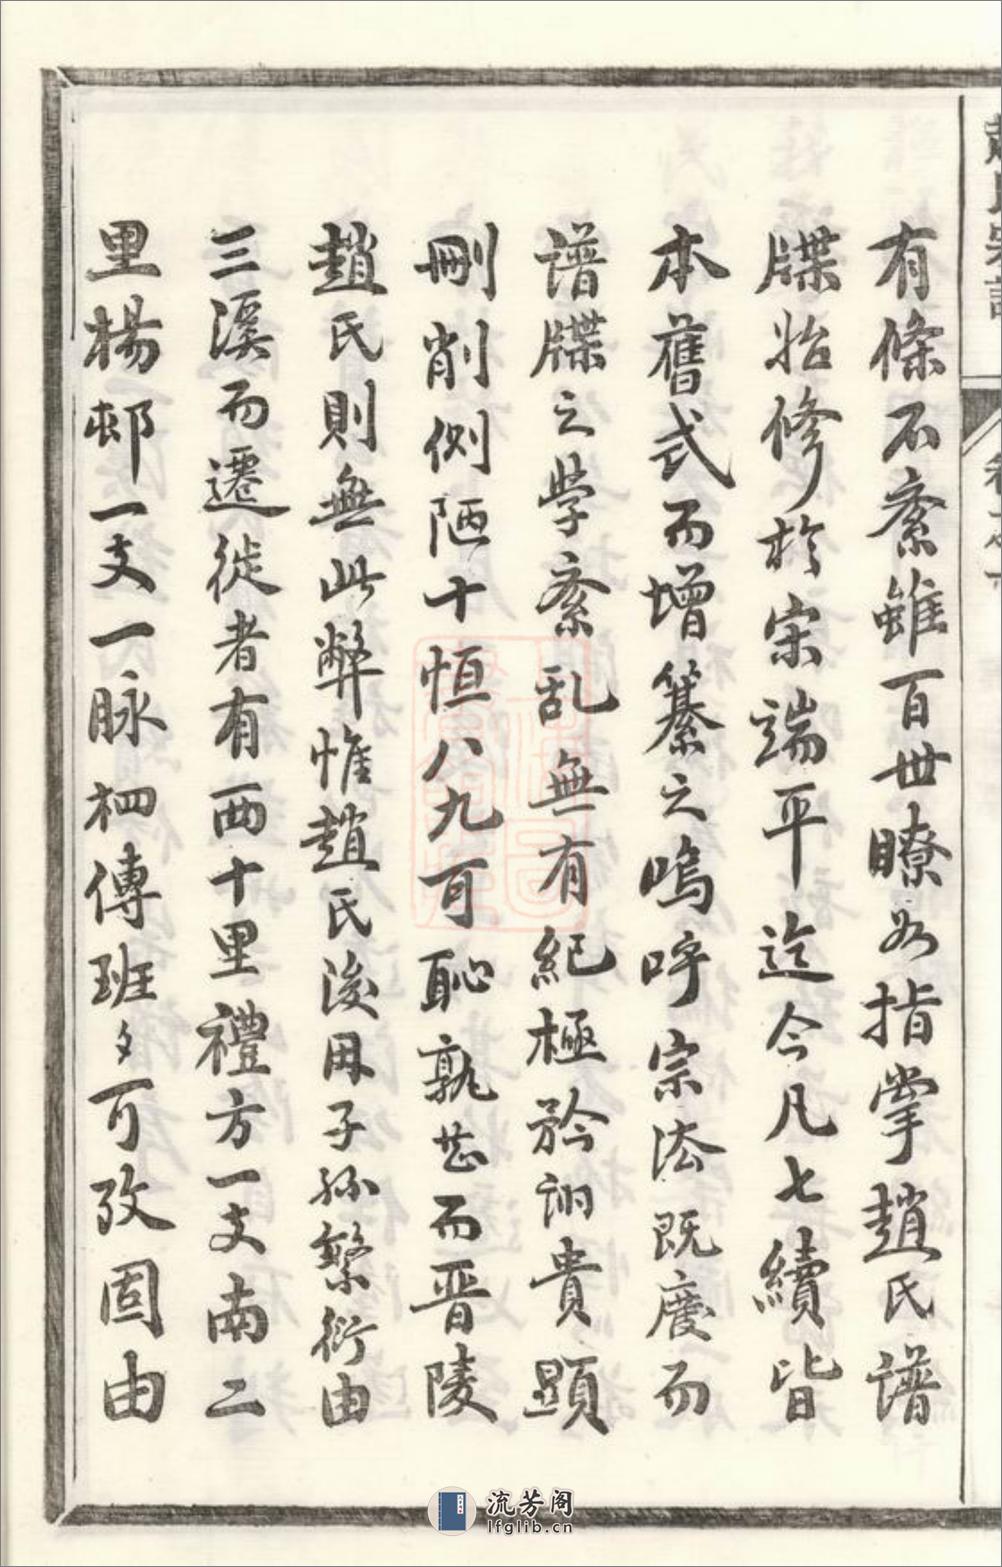 趙氏宗譜
有條不紊雖百世瞭如指掌趙氏譜
牒始修於宋端平迄今凡七續皆
本舊式而增纂之嗚呼宗法既廢而
譜牒之學紊乱無有紀極矜詡貴顯
刪削側陋十恒八九可恥孰甚而晋陵
趙氏則無此弊惟趙氏後因子孫繁衍由
三溪而遷徙者有西十里禮方一支南二
里楊邨一支一脉相傳班〻可攷固由
流芳阁
lfglib.cn